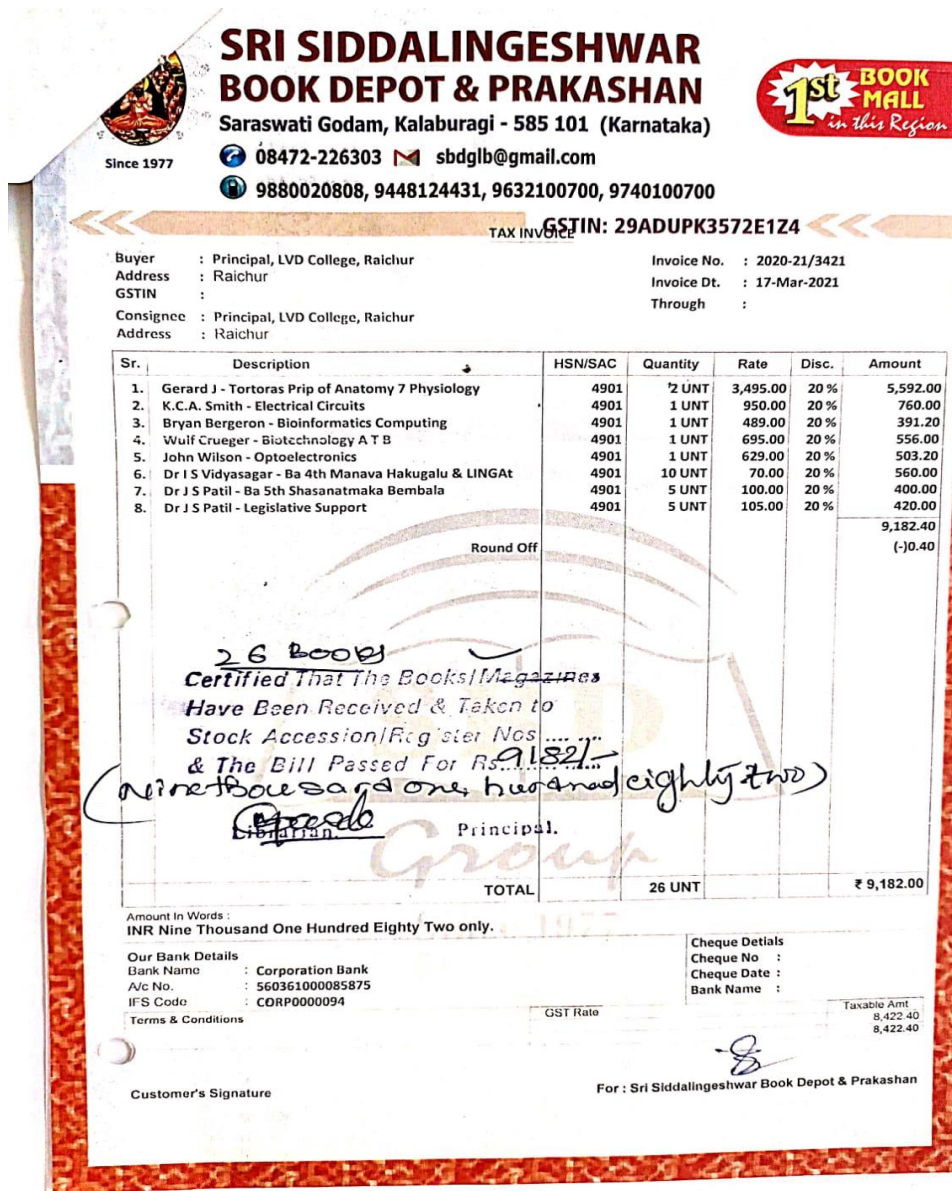 SRI SIDDALINGESHWAR
BOOK DEPOT & PRAKASHAN
Saraswati Godam, Kalaburagi - 585 101 (Karnataka)
08472-226303 sbdglb@gmail.com
9880020808, 9448124431, 9632100700, 9740100700
Since 1977
1st BOOK MALL in this Region
TAX INVOICE GSTIN: 29ADUPK3572E1Z4
Buyer : Principal, LVD College, Raichur Invoice No. : 2020-21/3421
Address : Raichur Invoice Dt. : 17-Mar-2021
GSTIN : Through :
Consignee : Principal, LVD College, Raichur
Address : Raichur
Sr. Description HSN/SAC Quantity Rate Disc. Amount
1. Gerard J - Tortoras Prip of Anatomy 7 Physiology 4901 2 UNT 3,495.00 20 % 5,592.00
2. K.C.A. Smith - Electrical Circuits 4901 1 UNT 950.00 20 % 760.00
3. Bryan Bergeron - Bioinformatics Computing 4901 1 UNT 489.00 20 % 391.20
4. Wulf Crueger - Biotechnology A T B 4901 1 UNT 695.00 20 % 556.00
5. John Wilson - Optoelectronics 4901 1 UNT 629.00 20 % 503.20
6. Dr I S Vidyasagar - Ba 4th Manava Hakugalu & LINGAt 4901 10 UNT 70.00 20 % 560.00
7. Dr J S Patil - Ba 5th Shasanatmaka Bembala 4901 5 UNT 100.00 20 % 400.00
8. Dr J S Patil - Legislative Support 4901 5 UNT 105.00 20 % 420.00
9,182.40
Round Off (-)0.40
26 Books
Certified That The Books/Magazines
Have Been Received & Taken to
Stock Accession/Register Nos .... ...
& The Bill Passed For Rs. 9182/-
(Nine thousand one hundred eighty two)
Librarian Principal.
SBD
Group
TOTAL 26 UNT ₹ 9,182.00
Amount In Words :
INR Nine Thousand One Hundred Eighty Two only.
Our Bank Details Cheque Detials
Bank Name : Corporation Bank Cheque No :
A/c No. : 560361000085875 Cheque Date :
IFS Code : CORP0000094 Bank Name :
Terms & Conditions GST Rate Taxable Amt
8,422.40
8,422.40
Customer's Signature For : Sri Siddalingeshwar Book Depot & Prakashan